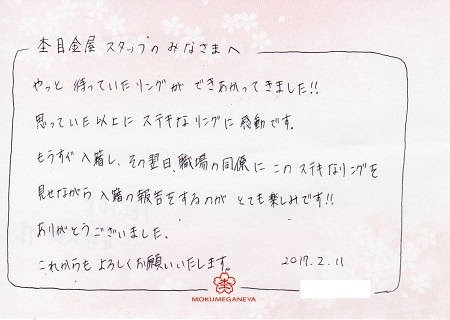 杢目金屋 スタッフの みなさまへ
やっと 待っていた リングが できあがってきました!!
思っていた以上に ステキな リングに 感動です。
もうすぐ 入籍し、その翌日、職場の同僚に この ステキなリングを
見せながら 入籍の報告をするのが とても楽しみです!!
ありがとうございました。
これからも よろしくお願いいたします。 2017.2.11
杢
MOKUMEGANEYA